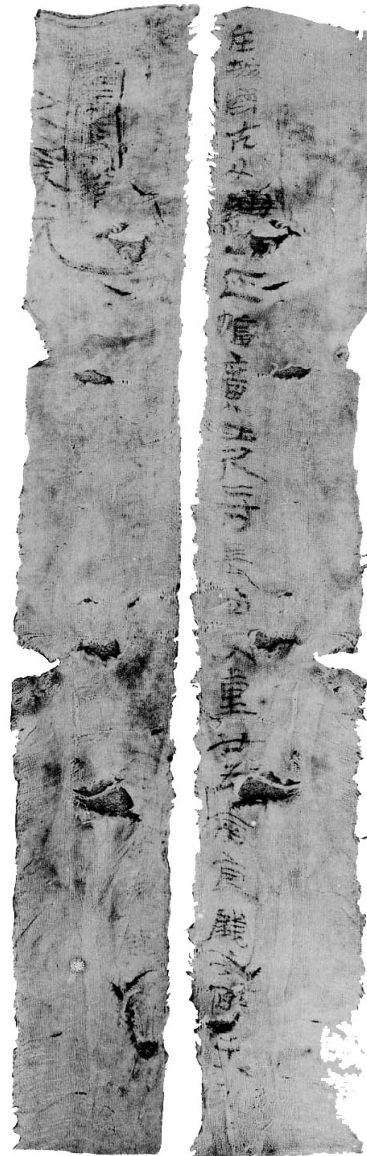 任城國亢父縑一匹幅廣二尺二寸長四丈重廿五兩直錢六百一十八